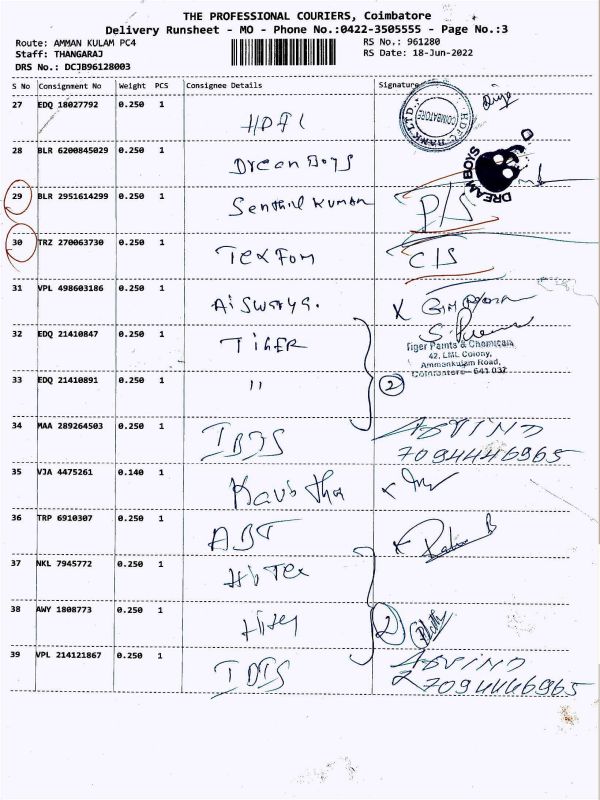 THE PROFESSIONAL COURIERS, Coimbatore
Delivery Runsheet - MO - Phone No.:0422-3505555 - Page No.:3
Route: AMMAN KULAM PC4 RS No.: 961280
Staff: THANGARAJ RS Date: 18-Jun-2022
DRS No.: DCJB96128003
S No Consignment No Weight PCS Consignee Details Signature
27 EDQ 18027792 0.250 1
COIMBATORE
28 BLR 6200845029 0.250 1 Dream Boys
DREAM BOYS
29 BLR 2951614299 0.250 1 Senthil Kumar P/S
30 TRZ 270063730 0.250 1 C/S
31 VPL 498603186 0.250 1
32 EDQ 21410847 0.250 1 TIGER
Tiger Paints & Chemicals
42, LML Colony,
Ammankulam Road,
Coimbatore - 641 037
33 EDQ 21410891 0.250 1 " 2
34 MAA 289264503 0.250 1
7094446965
35 VJA 4475261 0.140 1
36 TRP 6910307 0.250 1 ABT
37 NKL 7945772 0.250 1
38 AWY 1808773 0.250 1 2
39 VPL 214121867 0.250 1
7094446965